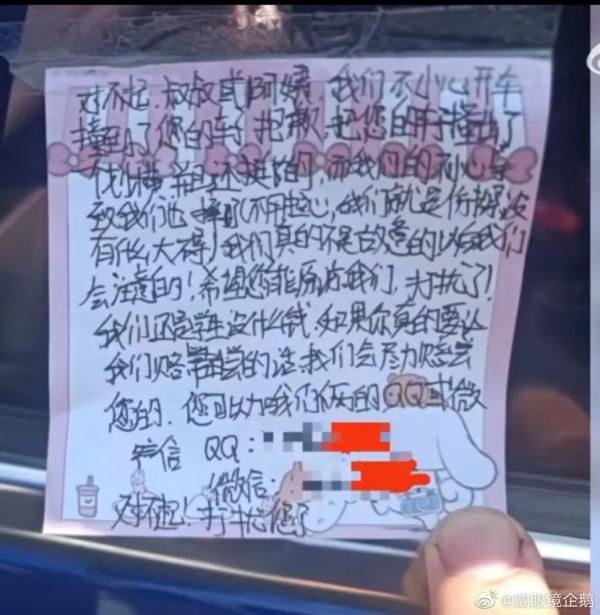 对不起，叔叔或阿姨，我们不小心开车
撞到了您的车，抱歉，把您的车撞出了
我们的不小心导
致我们也摔，不用担心，我们就是份擦没
有什么大碍，我们真的不是故意的以后我们
会注意的！希望您能原谅我们，打扰了！
我们还是学生没什么钱，如果你真的要让
我们赔偿的话，我们会尽力赔偿
您的，您可以加我们俩的QQ或微
信 QQ：
微信：
对不起！打扰您了
@戴眼镜企鹅